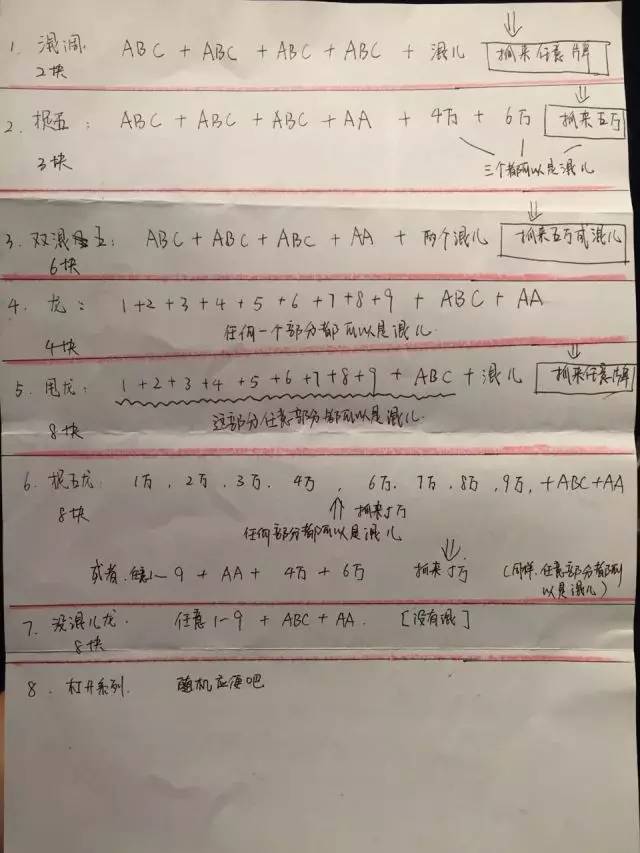 1. 混调. ABC + ABC + ABC + ABC + 混儿 抓来任意牌
2块
2. 捉五: ABC + ABC + ABC + AA + 4万 + 6万 抓来五万
三个都可以是混儿
3块
3. 双混五: ABC + ABC + ABC + AA + 两个混儿 抓来五万或混儿
6块
4. 龙: 1+2+3+4+5+6+7+8+9 + ABC + AA
任何一个部分都可以是混儿.
4块
5. 甩龙: 1+2+3+4+5+6+7+8+9 + ABC + 混儿 抓来任意牌
这部分任意部分都可以是混儿.
8块
6. 捉五龙: 1万, 2万, 3万, 4万, 6万, 7万, 8万, 9万, +ABC+AA
8块 抓来5万
任何部分都可以是混儿
或者. 任意1-9 + AA + 4万 + 6万 抓来5万 (同样. 任意部分都可以是混儿)
7. 没混儿龙. 任意1-9 + ABC + AA. [没有混]
8块
8. 杠开系列. 随机应变吧